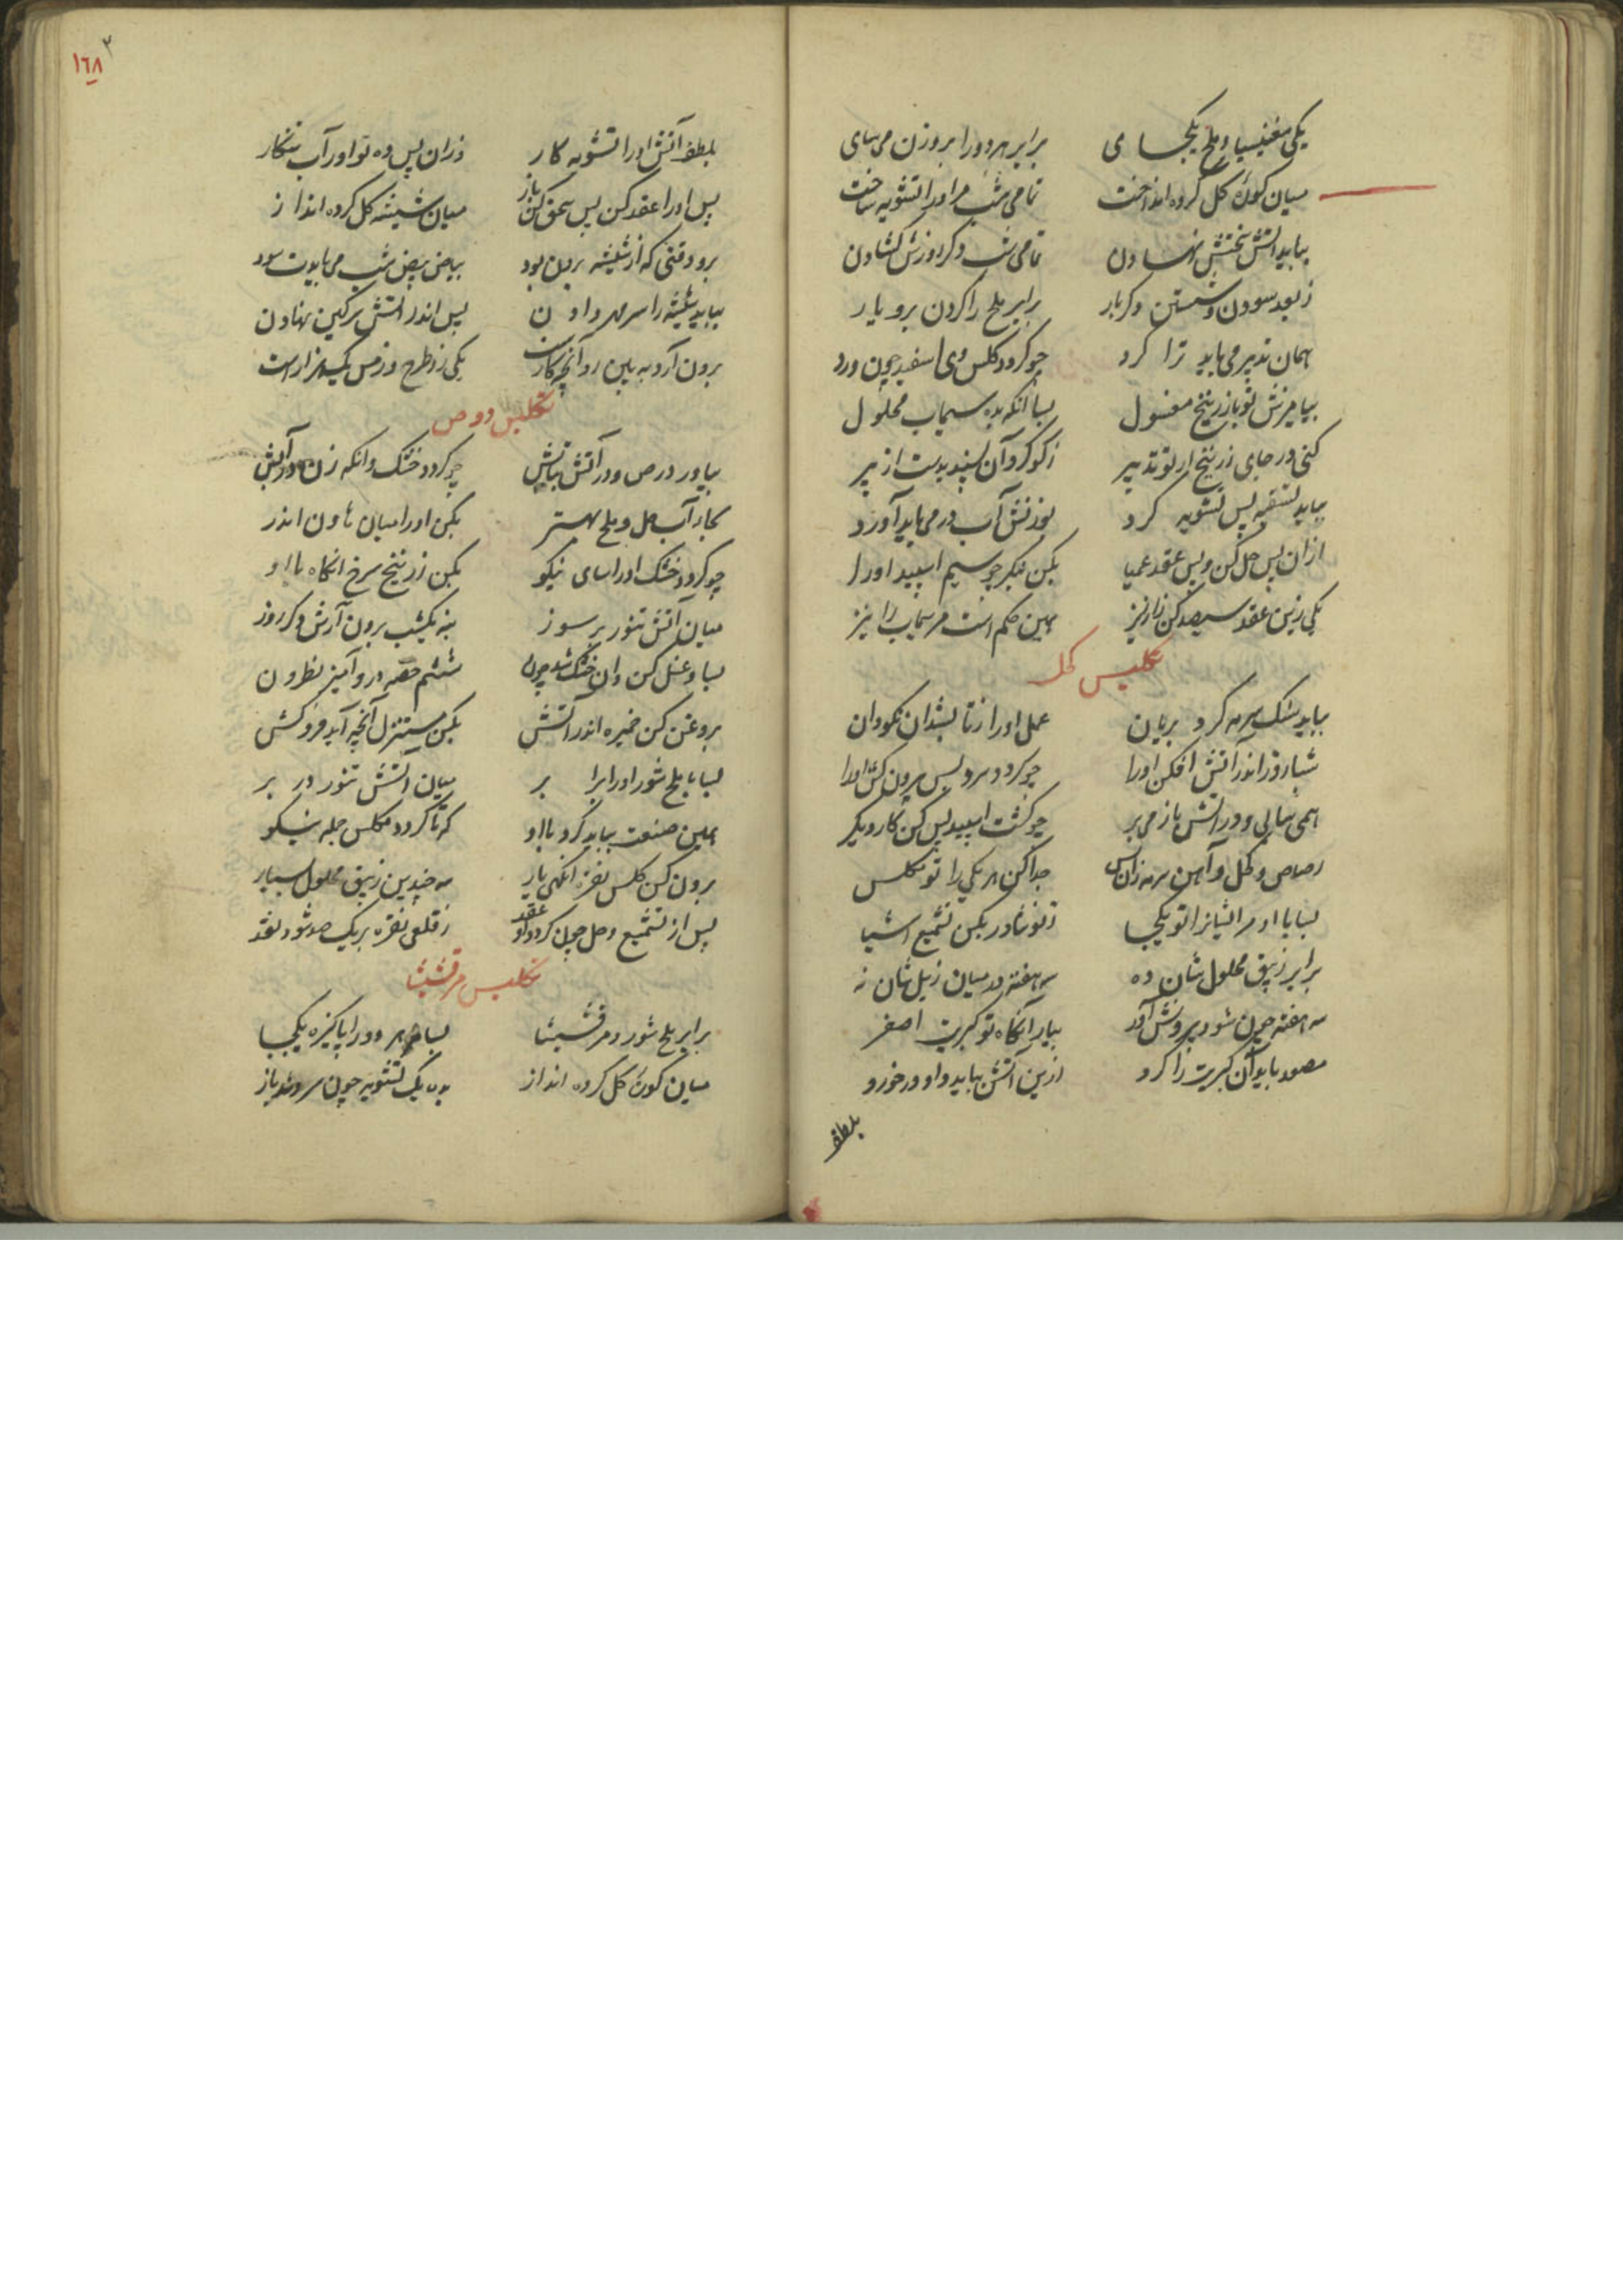 یکی مغنیسیا و ملح یکجای برابر هر دو را بر وزن می‌سای
میان کوزهٔ گل کرده انداخت تمامی شب مر او را تشویه ساخت
بباید آتش سختش نهادن تمامی شب دگر روزش گشادن
ز بعد سودن و شستن دگر بار برابر ملح را کردن برو یار
همان تدبیر می‌باید ترا کرد چو گردد کلس وی اسفید چون ورد
بیامیزش تو با زرنیخ مغسول بسا آنکه بده سیماب محلول
کنی در جای زرنیخ ار تو تدبیر ز گوگرد آن سپید بدست از پیر
بباید تسقیه پس تشویه کرد بوزنش آب در می‌باید آورد
از آن پس حل کن و پس عقد عمیا بکن بنگر چو سیم اسپید او را
یکی زین عقد سیصد کن ز ارزیز همین حکم است مر سیماب را نیز
تکلیس کحل
بباید سنگ سرمه کرد بریان عمل او را
شبان‌روز اندر آتش افکن او را چو گردد سرد پس بیرون کش او را
همی سایی و در آتش باز می‌بر چو گشت اسپید پس کن کار دیگر
رصاص و کحل و آهن سرمه زان پس جدا کن هر یکی را تو مکلس
بسا با او مر اشیا را تو یکجا ز نوشادر بکن تشمیع اشیا
برابر زیبق محلول شان ده سه هفته در میان زبل شان نه
سه هفته چون شود بیرونش آور بیار آنگاه تو کبریت اصفر
مصعد باید آن کبریت را کرد ازین آتش بباید داد و در خورد
بلطف
١٦٨
بلطف آتش او را تشویه کار وزان پس ده تو او را آب زنگار
پس او را عقد کن پس سحق کن باز میان شیشه گل کرده انداز
برو وقتی که از شیشه برون بود بیاض بیض شب می‌بایدت سود
بباید شیشه را سر مهر دادن پس اندر آتش سرگین نهادن
برون آر و ببین رو آنچه کار است یکی زو طرح و ز مس یک هزار است
تکلیس دوص
بیاور درص و در آتش بتابش چو گردد خشک وانگه زن در آبش
بکار آب خل و ملح بهتر بکن او را میان هاون اندر
چو گردد خشک او را سای نیکو بکن زرنیخ سرخ آنگاه با او
میان آتش تنور بر سوز بنه یکشب برون آرش دگر روز
بسا و غسل کن وان خشک شد چون ششم حصه درو آمیز نطرون
بروغن کن خمیره اندر آتش بکن مستنزل آنچه آید فروکش
بسا با ملح شور او را برابر میان آتش تنور در بر
همین صنعت بباید کرد با او که تا گردد مکلس جمله نیکو
برون کن کلس نقره آنگهی یار سه چندین زیبق محلول بسیار
پس از تشمیع و حل چون کردد او عقد ز قلعی نقره بر یک صد شود نقد
تکلیس مرقشیشا
برابر ملح شور و مرقشیشا بسا هر دو را پاکیزه یکجا
میان کوزهٔ گل کرده انداز بده یک تشویه چون سرد شد باز